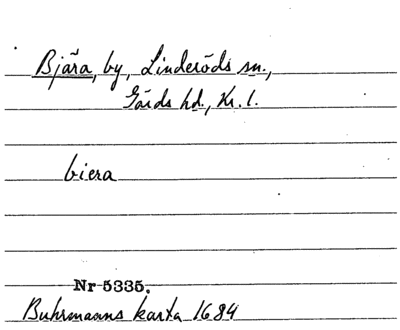 Bjära, by, Linderöds sn.,
Gärds hd., Kr. l.
biera
Nr 5335.
Buhrmanns karta 1684